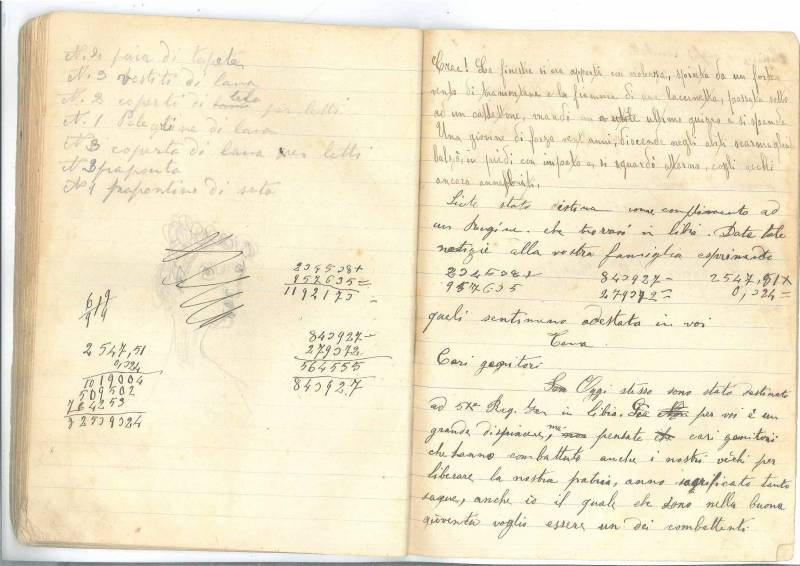 N. 2 paia di tapeta
N. 3 vestiti di lana
N. 2 coperti di lana tela per letti
N. 1 Pelegrina di lana
N 3 coperta di lana per letti
N 3 praponta
N 1 prapontino di seta
234538+
957635=
1192173
843927-
279372=
564555
843927
2547,51
0,324
1019004
509502
764253
82539324
Crac! La finestra si era apperti con violenza, spinta da un forte
vento di tramontana e la fiamma di una lucernetta, passata sotto
ad un cassettone, mandò un ultimo guizzo e si spense
Una giovine di forza vent'anni, discende negli abiti
balzò in piedi con impeto e si guardò attorno, cogli occhi
ancora annebbiti.
Siete stato destina come complimento ad
un . che trovasi in libia. Date tale
notizie alla vostra famiglia esprimente
234538+ 843927- 2547,51x
957635 279372= 0,324=
queli sentimeno adestata in voi
Tema
Cari genitori
Oggi stesso sono stato destinato
ad 5to Reg. in libia. per voi è un
grande dispiacere, ma pensate che cari genitori
che hanno combattuto anche i nostri vechi per
liberare la nostra patria, anno sagrificato tanto
sague, anche io il quale che sono nella buona
gioventà voglio essere un dei combattenti